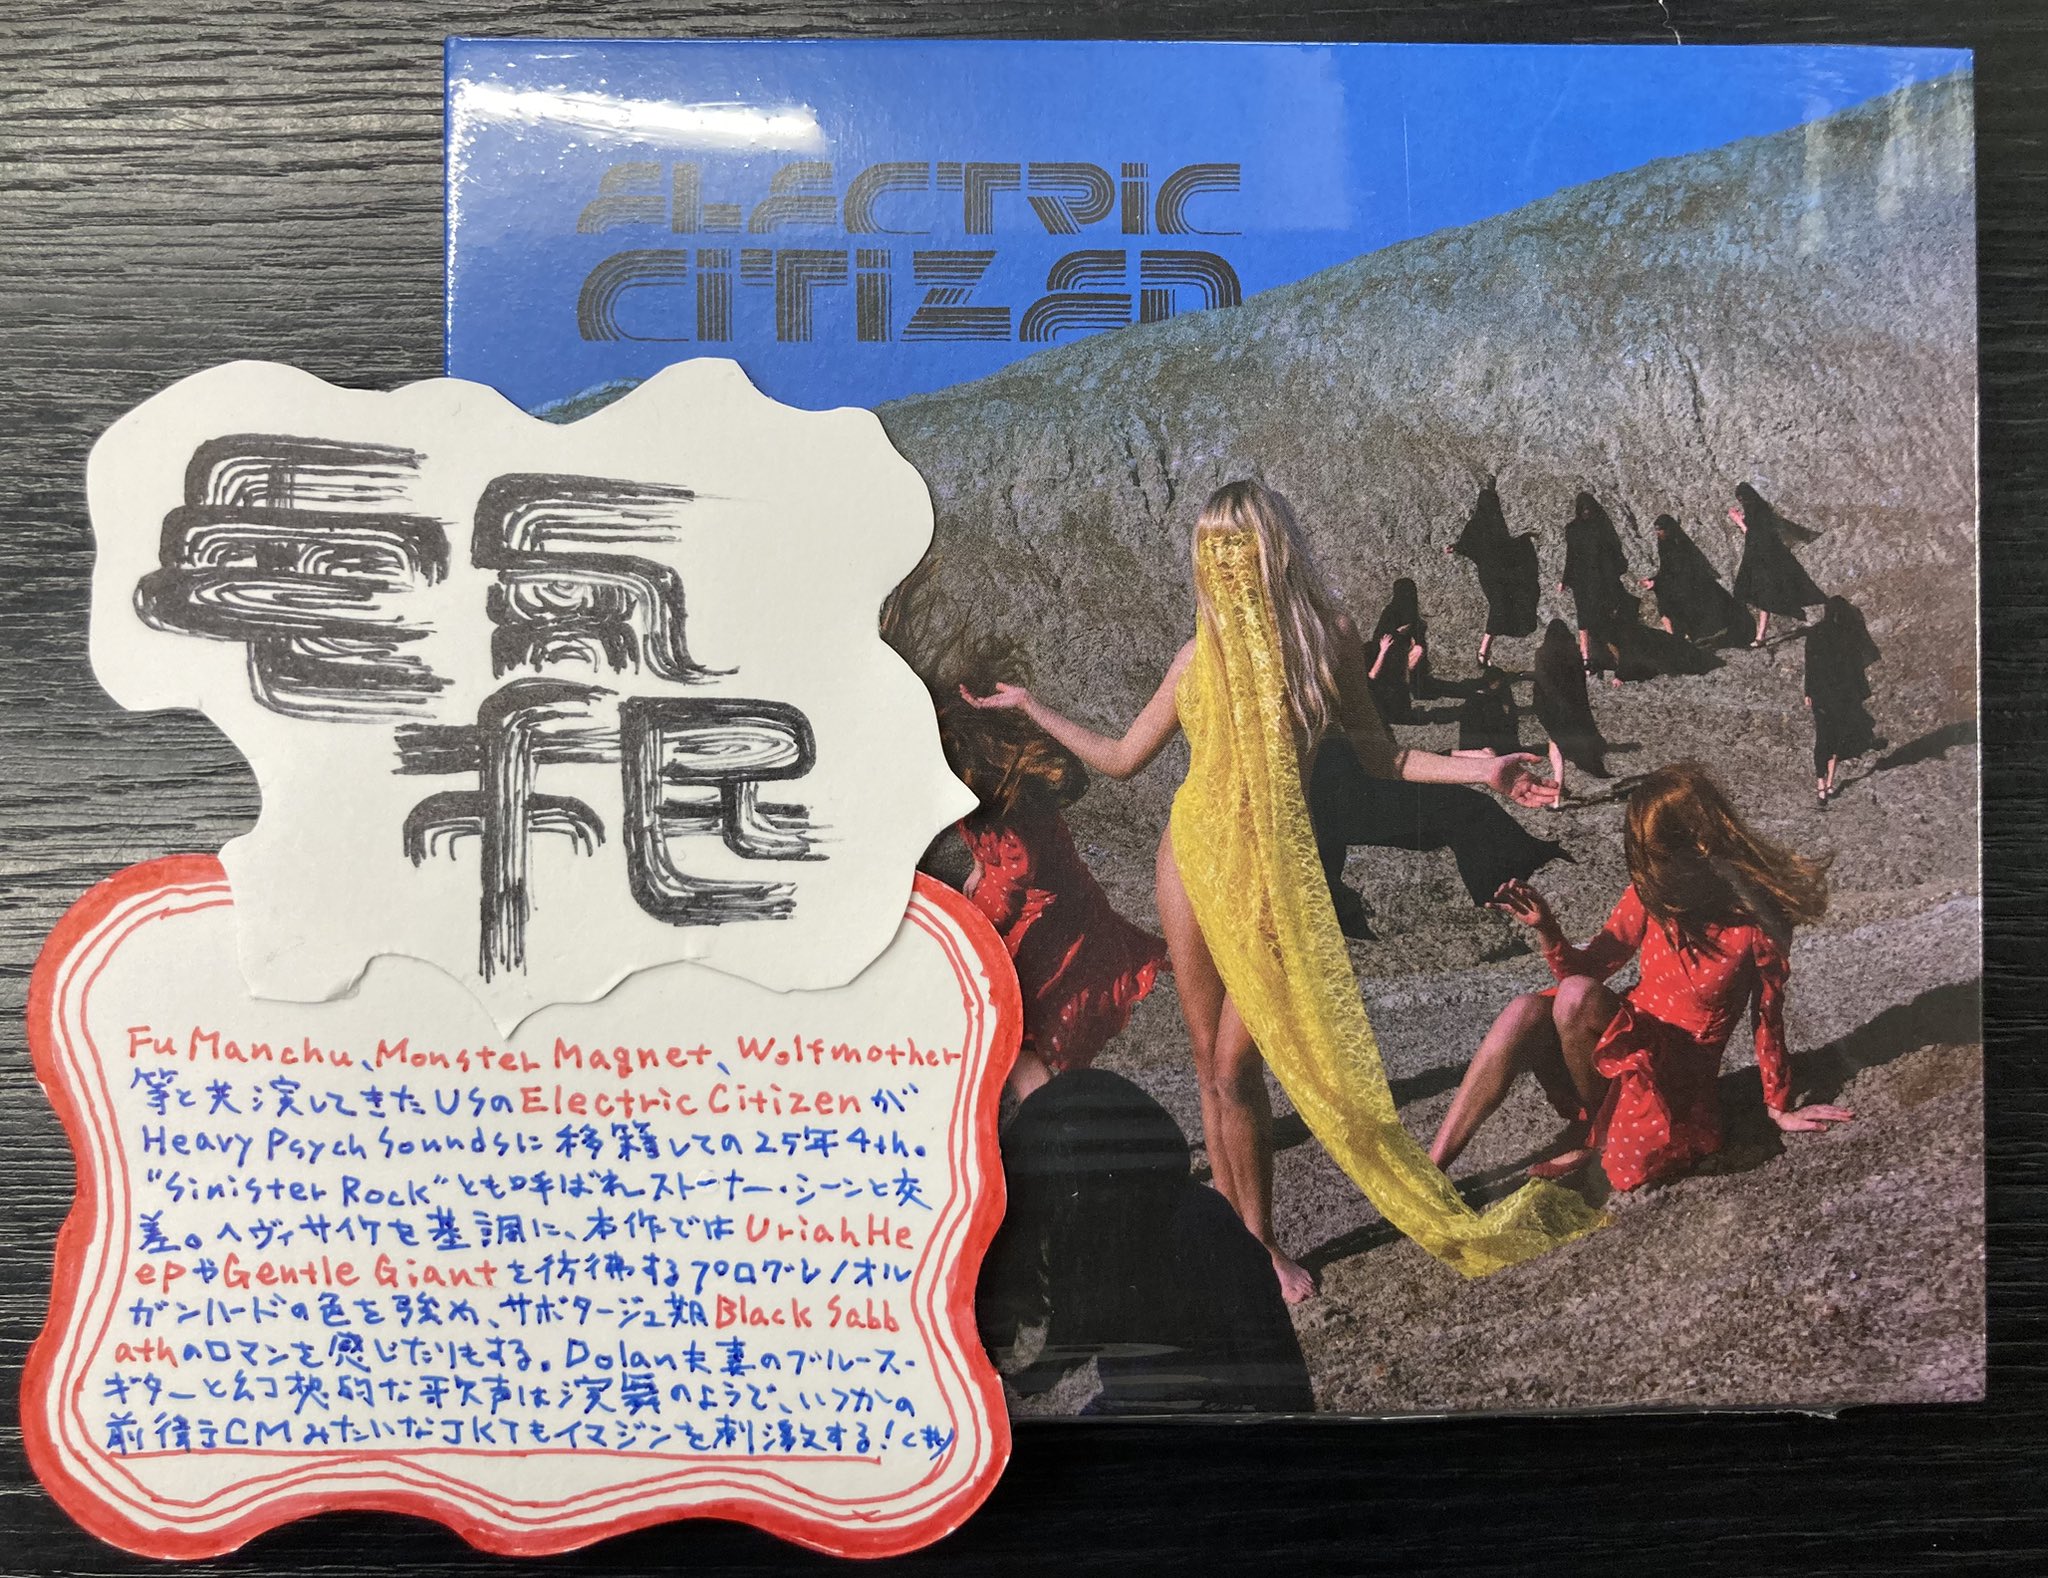 ELECTRIC
CITIZEN
電気
市民
Fu Manchu、Monster Magnet、Wolfmother
等と共演してきたUSのElectric Citizenが
Heavy Psych Soundsに移籍しての25年4th。
"Sinister Rock"とも呼ばれストーナー・シーンと交
差。ヘヴィサイケを基調に、本作ではUriah He
epやGentle Giantを彷彿するプログレ/オル
ガンハードの色を強め、サボタージュ期Black Sabb
athのロマンを感じたりもする。Dolan夫妻のブルース・
ギターと幻想的な歌声は演舞のようで、いつかの
前衛CMみたいなJKTもイマジンを刺激する!